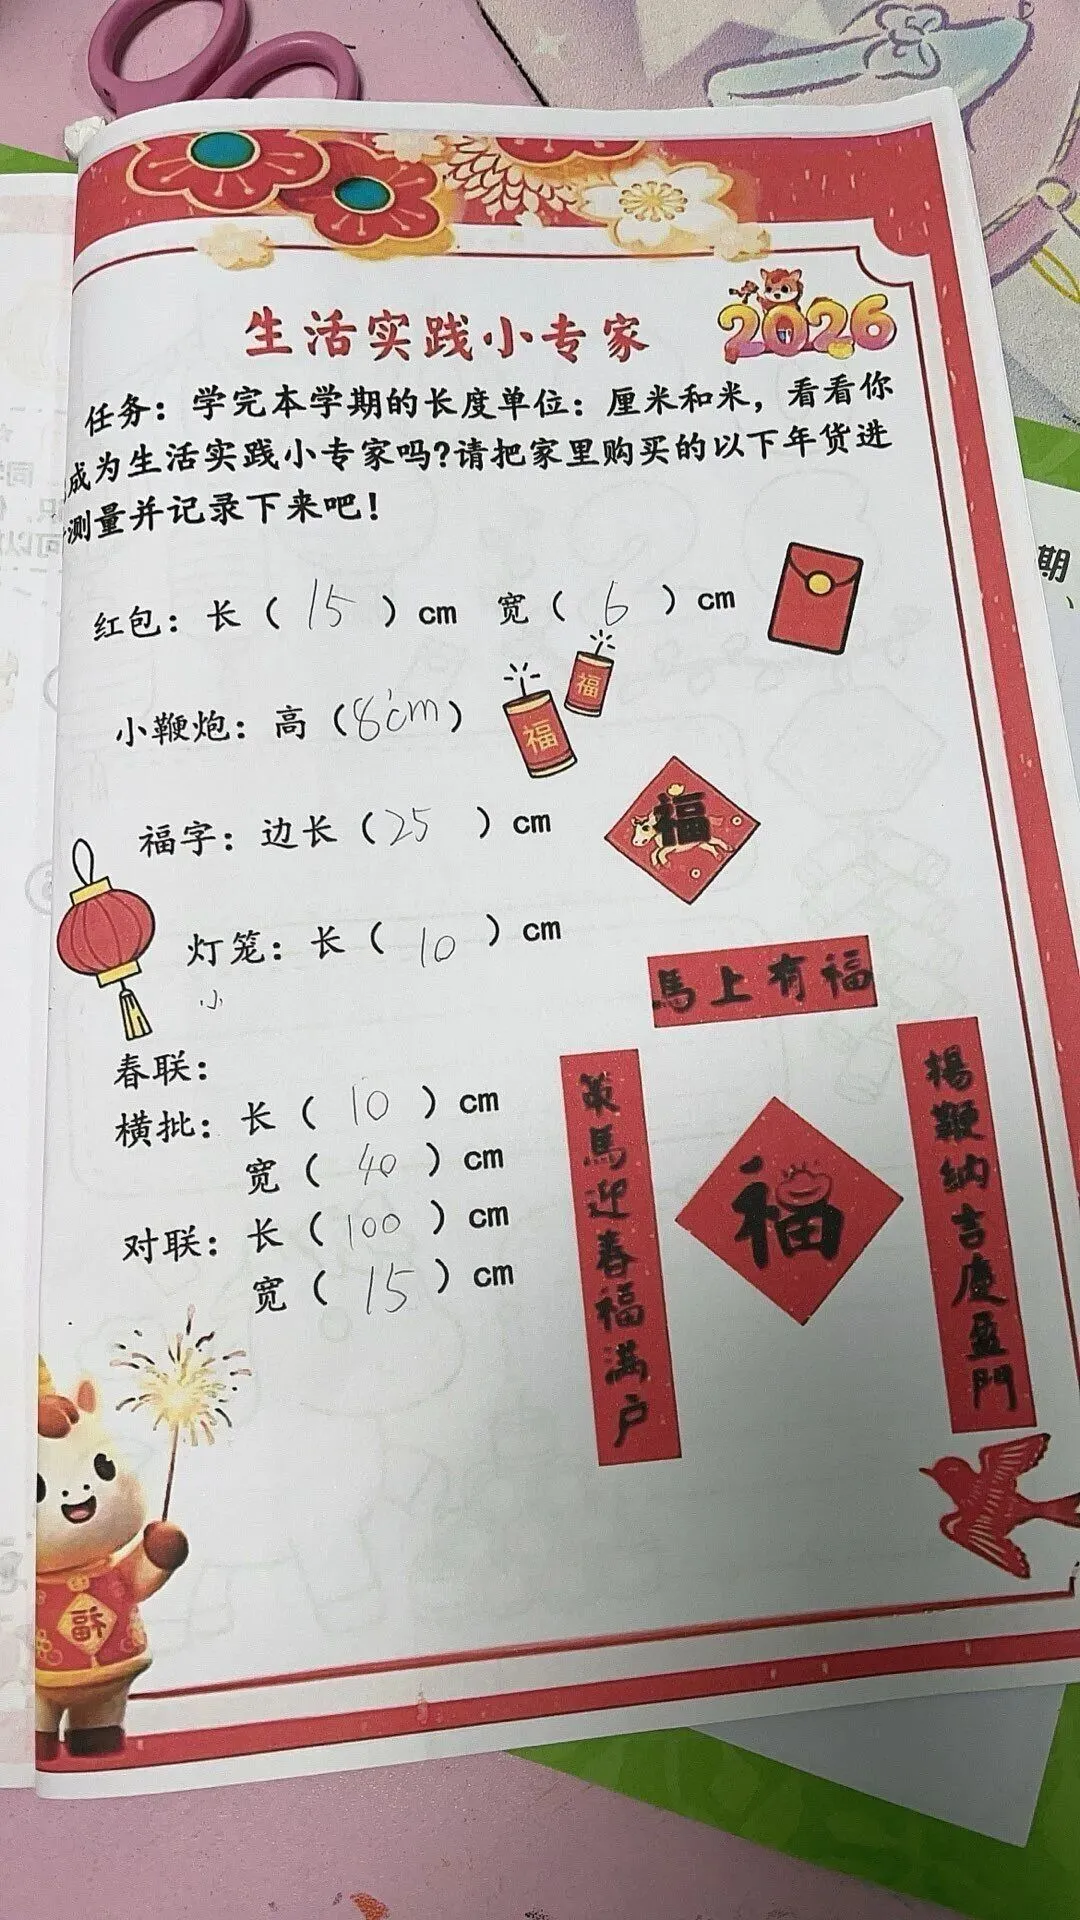 2026
生活实践小专家
任务：学完本学期的长度单位：厘米和米，看看你
成为生活实践小专家吗?请把家里购买的以下年货进
测量并记录下来吧！
期
红包：长（ 15 ）cm 宽（ 6 ）cm
小鞭炮：高（8cm）
福
福
福字：边长（25 ）cm
福
灯笼：长（ 10 ）cm
小
馬上有福
春联：
横批：长（ 10 ）cm
宽（ 40 ）cm
对联：长（100 ）cm
宽（ 15 ）cm
策馬迎春福满户
福
揚鞭纳吉慶盈門
福